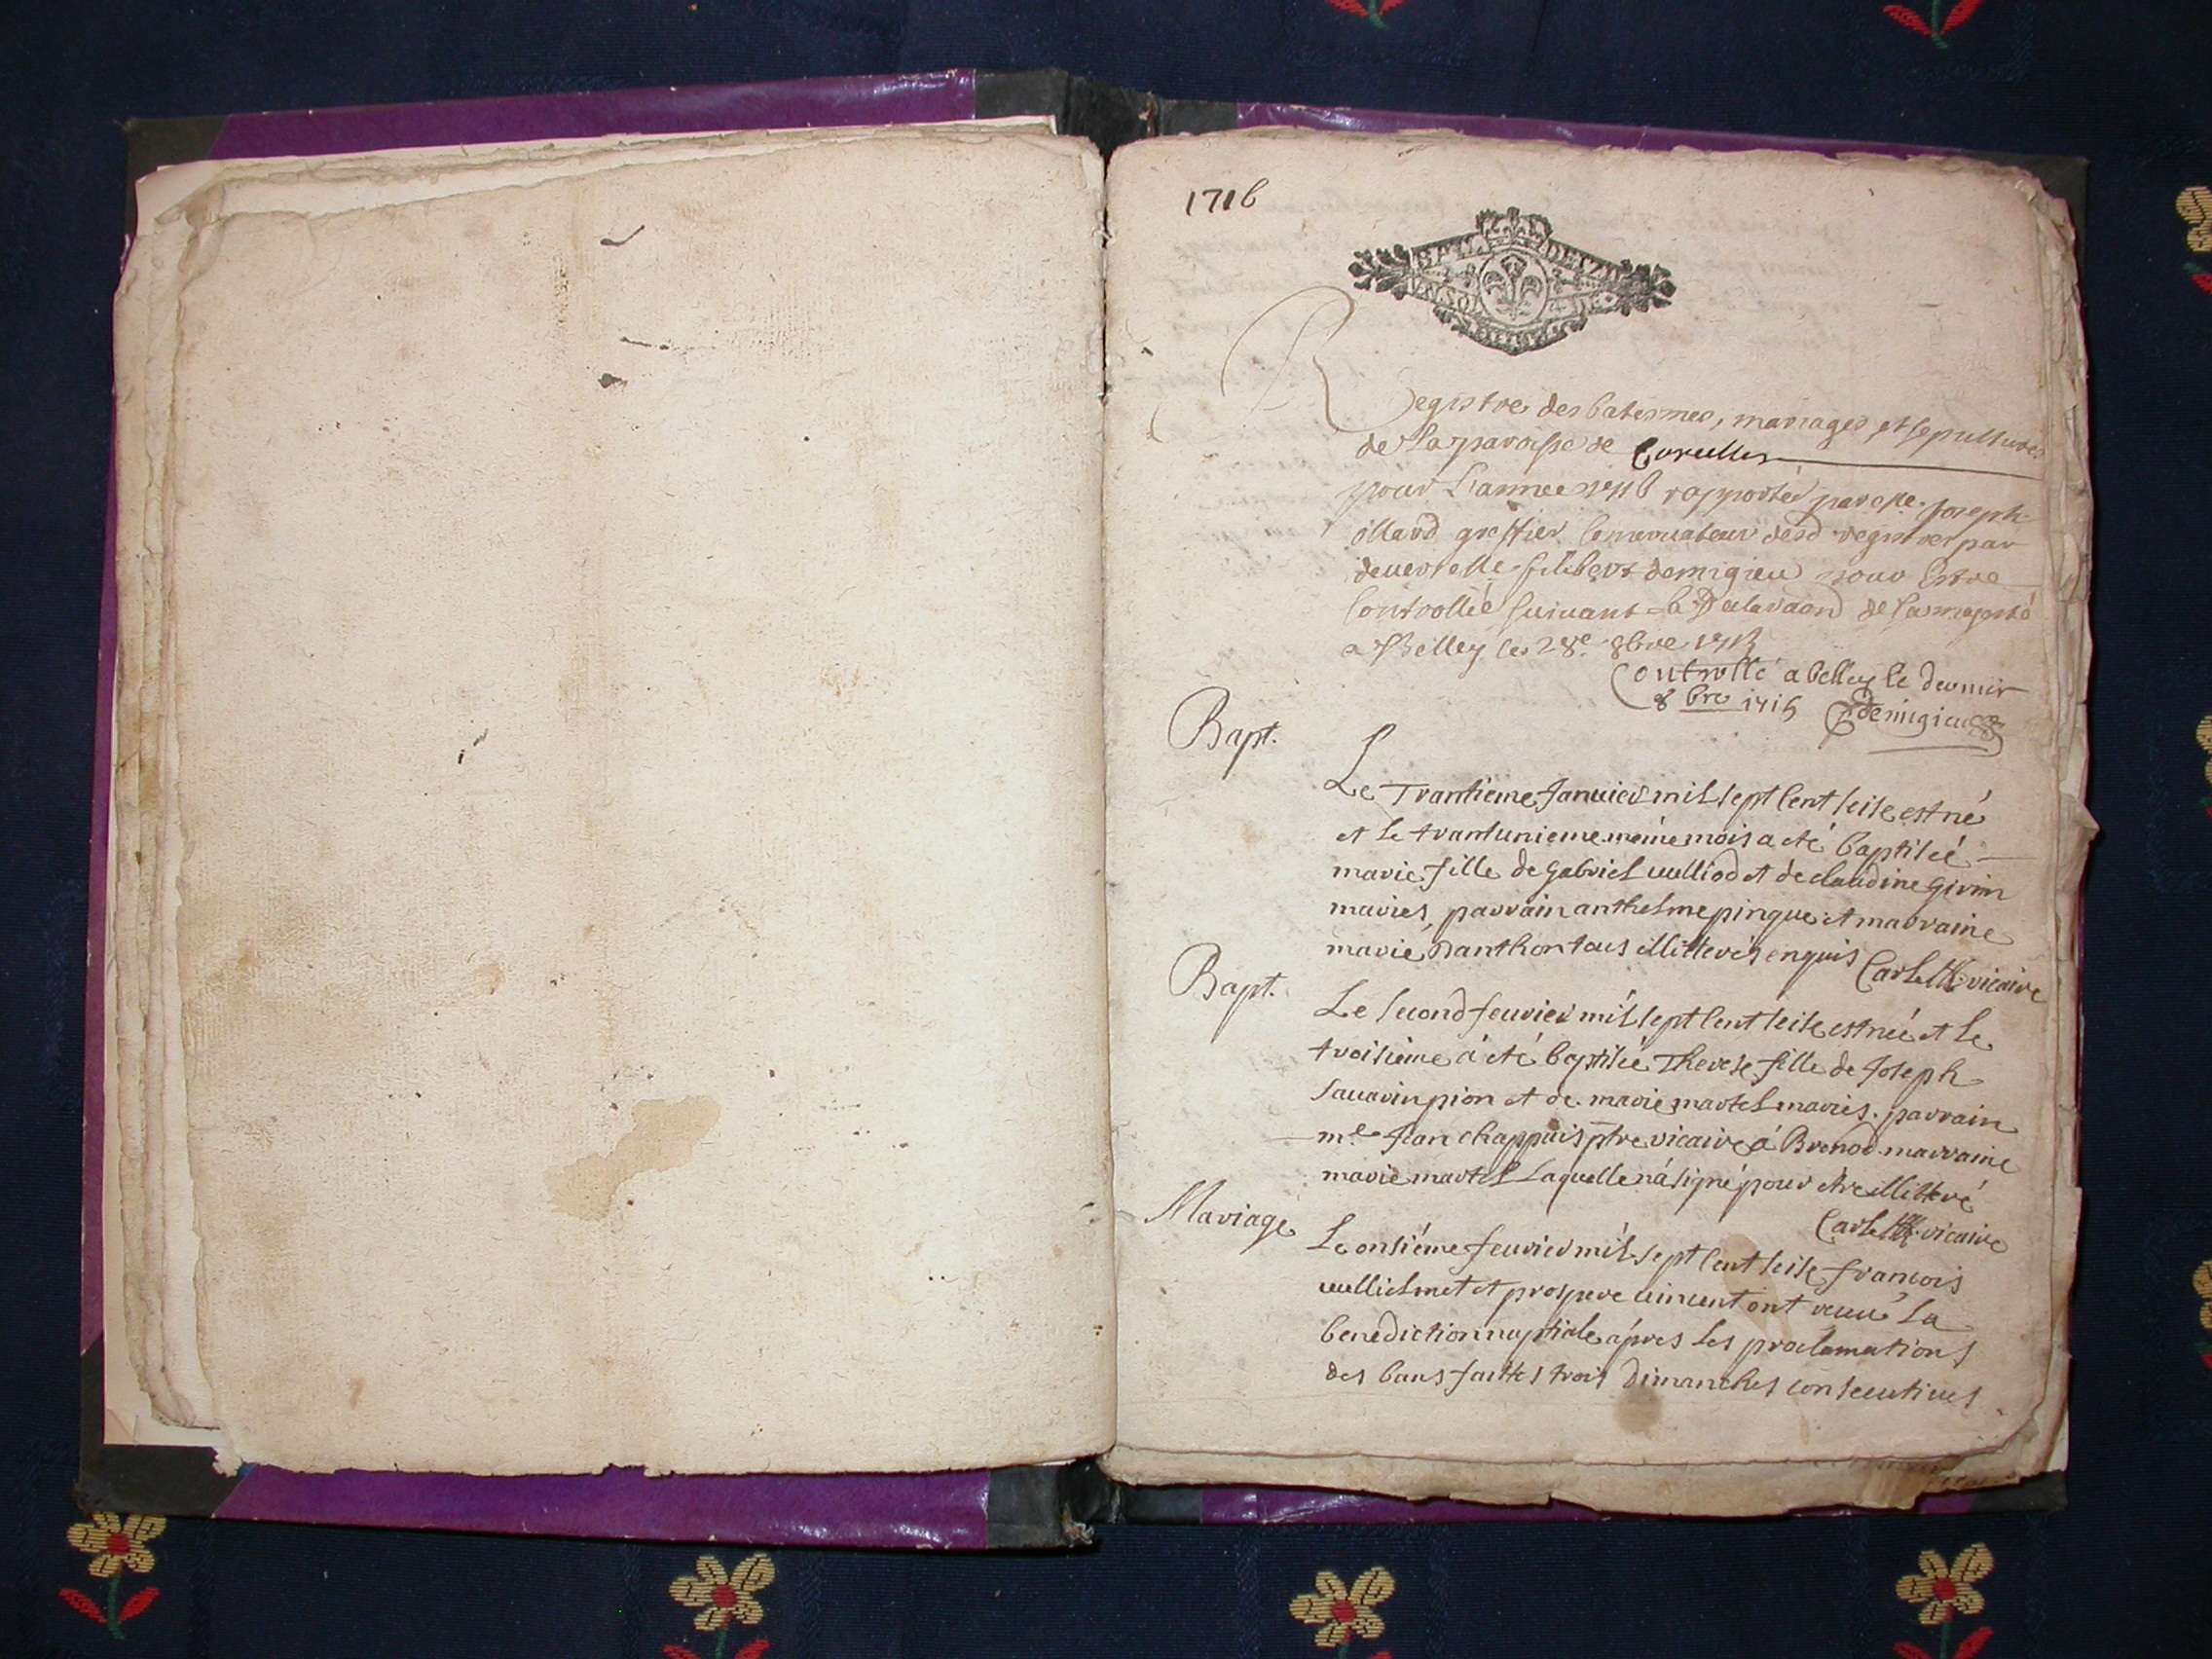 1716
BAIL DE BZD
UN SOL 4 D
Registre des batesmes, mariages, et sepultures
de la paroisse de Corcelles
pour l'annee 1716 rapporté par Me Joseph
illard greffier conservateur desd registres par
devers Me filibert demigieu pour Estre
Controllée suivant la Declaraon de sa majesté
a Belley le 28e 8bre 1715
Controllé a belley le dernier
8bre 1715 demigieu
Bapt.
Le Trantieme Januier mil sept cent seise est né
et le trantunieme même mois a eté baptisée
marie fille de gabriel uulliod et de claudine girin
maries, parrain anthelme pingue et marraine
marie Danthon tous illitterés enquis Carle vicaire
Bapt.
Le second feurier mil sept cent seise est neé et le
troisieme a eté baptisée Therese fille de Joseph
sauarin pion et de marie martel mariés. parrain
me Jean chappuis ptre vicaire á Brenod marraine
marie martel Laquelle ná signé pour etre illitteré
Carle vicaire
Mariage
Le onsiéme feurier mil sept cent seise francois
uullielmet et prospere uincent ont receu la
benediction nuptiale ápres les proclamations
des bans faittes trois Dimanches consecutiues